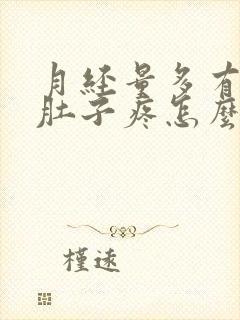 月经量多有
肚子疼怎麼
槿速